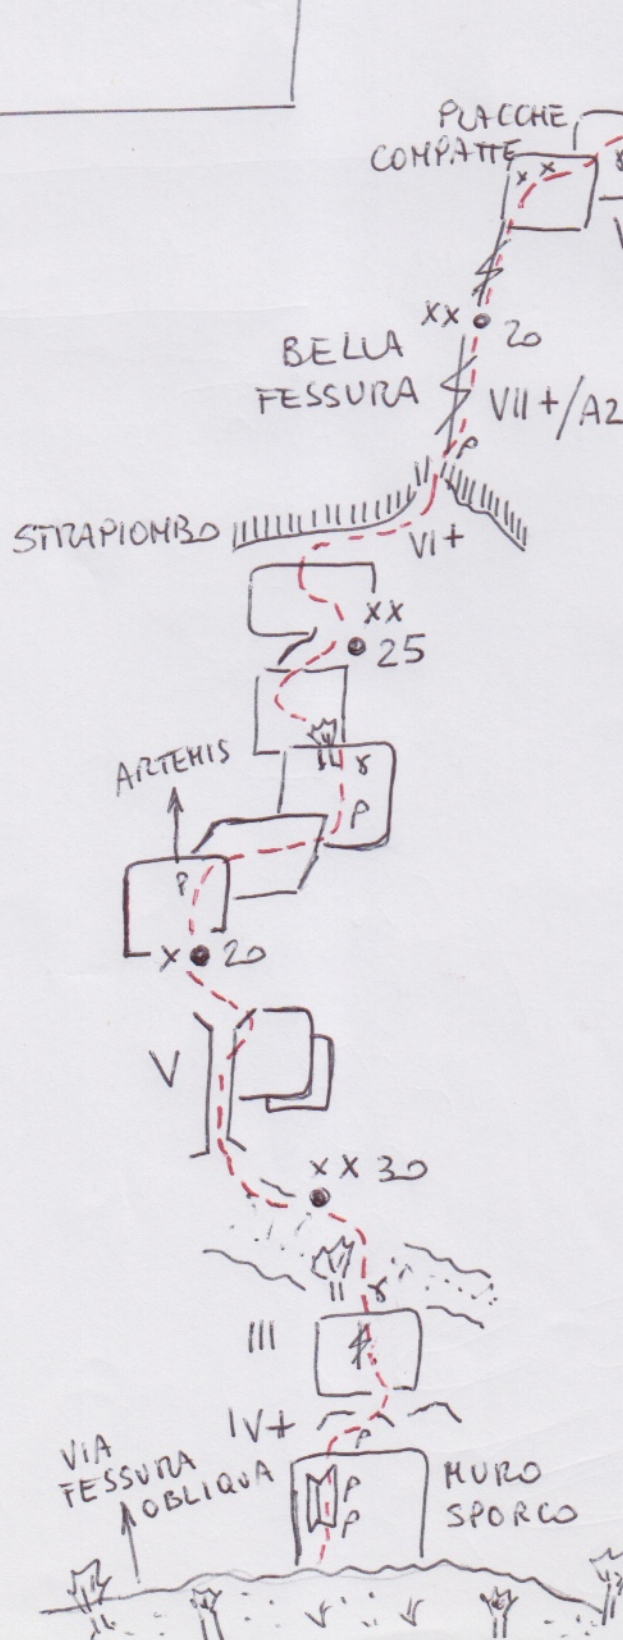 PLACCHE
COMPATTE
x x
V
XX 20
BELLA
FESSURA
VII+/A2
P
STRAPIOMBO
VI+
XX
25
ARTEMIS
P
P
X 20
V
XX 30
III
IV+
P
VIA
FESSURA
OBLIQUA
P
P
MURO
SPORCO